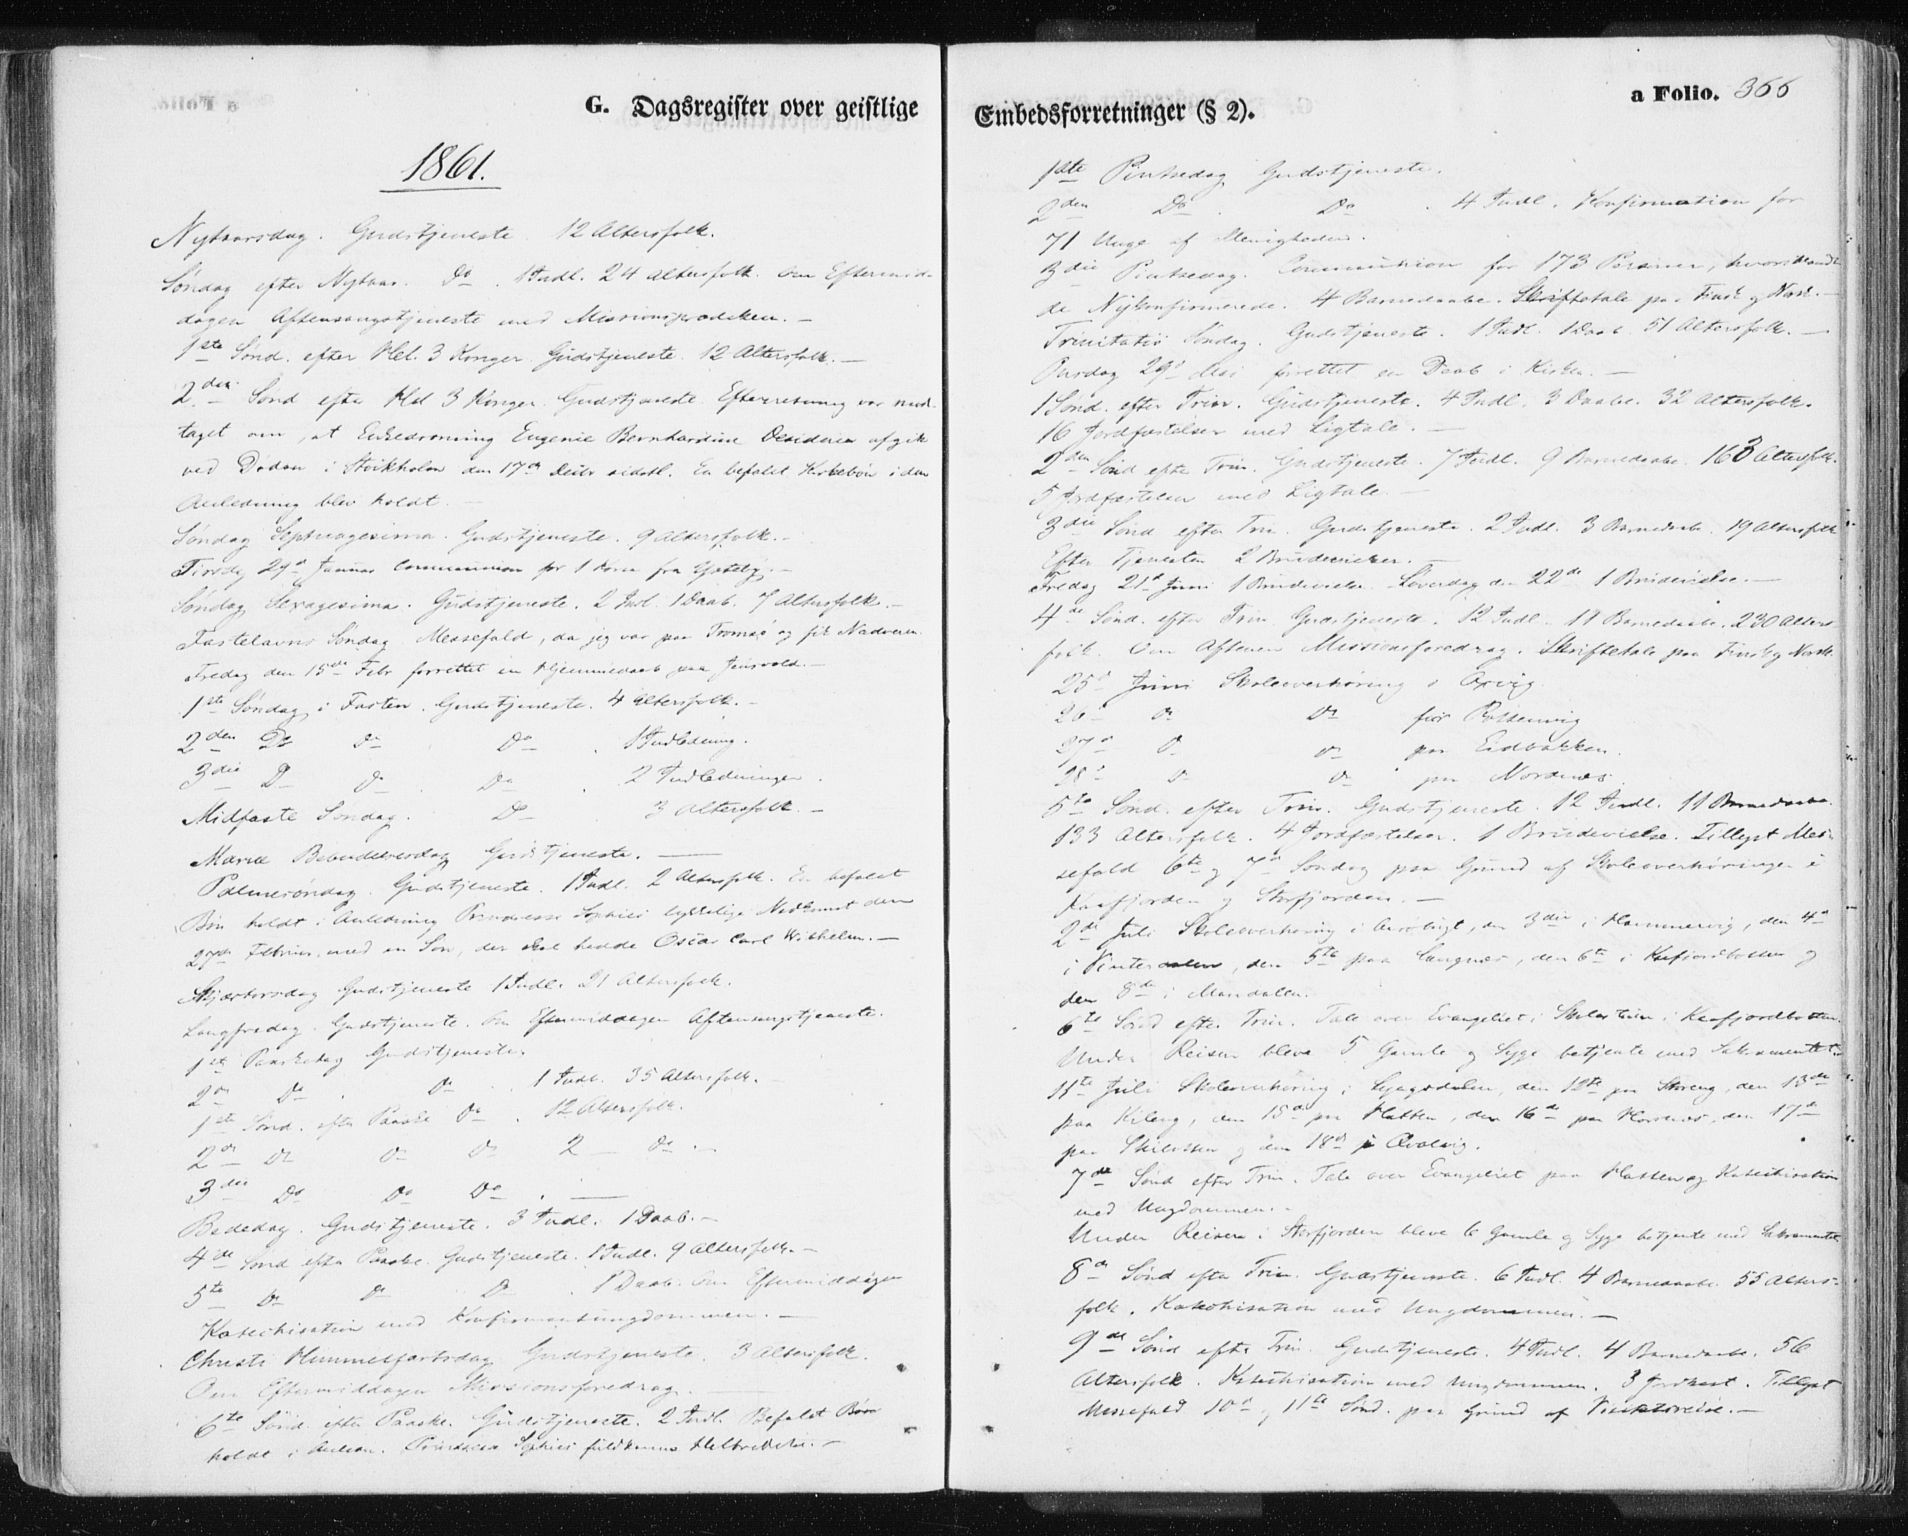 G. Dagsregister over geistlige
1861.
Nytaarsdag. Gudstjeneste. 12 Altersfolk.
Søndag efter Nytaar. Do. 1 Indl. 24 Altersfolk. Om Eftermid-
dagen Aftensangstjeneste med Missionsprædiken. —
1ste Sønd. efter Hel. 3 Konger. Gudstjeneste. 12 Altersfolk. —
2den Sønd efter Hel 3 Konger. Gudstjeneste. Efterretning var mod-
taget om, at Enkedronning Eugenie Bernhardine Desideria afgik
ved Døden i Stockholm den 17de Decbr sidstl. En befalet Kirkebøn i den
Anledning blev holdt. —
Søndag Septuagesima. Gudstjeneste. 9 Altersfolk. —
Tirsdag 29d Januar Communion for 1 fra
Søndag Sexagesima. Gudstjeneste. 2 Indl. 1 Daab. 7 Altersfolk. —
Fastelavns Søndag Messefald, da jeg var paa Tromsø og fik
Fredag den 15de Febr forrettet en Hjemmedaab paa —
1ste Søndag i Fasten. Gudstjeneste. 4 Altersfolk. —
2den Do Do Do. 1 Indledning.
3die D Do Do. 2 Indledninger.
Midfaste Søndag. Do 3 Altersfolk. —
Mariæ Bebudelsesdag Gudstjeneste. —
Palmesøndag. Gudstjeneste. 1 Indl. 2 Altersfolk. En befalet
Bøn holdt i Anledning Prindsesse Sophies lykkelige Nedkomst den
27de Februar med en Søn, der skal hedde Oscar Carl Wilhelm. —
Skjærtorsdag Gudstjeneste 1 Indl. 21 Altersfolk.
Langfredag. Gudstjeneste. Om Eftermiddagen Aftensangstjeneste.
1ste Paaskedag Gudstjeneste.
2den Do. Do. 1 Indl. 35 Altersfolk. —
1ste Sønd. efter Paaske Do. 12 Altersfolk.
2den Do Do Do 2 — Do. —
3die Do Do Do. —
Bededag. Gudstjeneste. 3 Indl. 1 Daab. —
4de Sønd efter Paaske. Gudstjeneste. 1 Indl. 9 Altersfolk. —
5te Do Do Do. 1 Daab. Om Eftermiddagen
Katechisation med Konfirmantungdommen. —
Christi Himmelfartsdag Gudstjeneste. 3 Altersfolk.
Om Eftermiddagen Missionsforedrag.
6te Sønd. efter Paaske. Gudstjeneste. 2 Indl. Befalet Bøn
holdt i Anledn. Prindsesse Sophies fuldkomne Helbredelse. —
Embedsforretninger (§ 2).
a Folio. 366
1ste Pintsedag Gudstjeneste.
2den Do. Do. 4 Indl. Konfirmation for
71 Unge af Menigheden.
3die Pintsedag. Communion for 173 Personer, hvoriblandt
de Nykonfirmerede. 4 Barnedaabe. Skriftetale paa Finsk og Norsk. —
Trinitatis Søndag. Gudstjeneste. 1 Indl. 1 Daab. 51 Altersfolk. —
Onsdag 29d Mai forrettet en Daab i Kirken. —
1 Sønd. efter Trin. Gudstjeneste. 4 Indl. 3 Daabe. 32 Altersfolk.
16 Jordfæstelser med Ligtale. —
2den Sønd efter Trin. Gudstjeneste. 7 Indl. 9 Barnedaabe. 163 Altersfolk.
5 Jordfæstelser med Ligtale. —
3die Sønd efter Trin. Gudstjeneste. 2 Indl. 3 Barnedaabe. 19 Altersfolk
Efter Tjenesten 2 Brudevielser. —
Fredag 21d Juni 1 Brudevielse. Løverdag den 22de 1 Brudevielse. —
4de Sønd. efter Trin. Gudstjeneste. 12 Indl. 11 Barnedaabe. 230 Alters
folk. Om Aftenen Missionsforedrag. Skriftetale paa Finsk og Norsk.
25d Juni Skoleoverhøring i Oxvig
26 Do Do
27d D. Do paa Eidbakken.
28d D Do paa Nordnæs.
5te Sønd. efter Trin. Gudstjeneste. 12 Indl. 11 Barnedaabe.
133 Altersfolk. 4 Jordfæstelser. 1 Brudevielse. Tillyst Mes-
sefald 6te og 7de Søndag paa Grund af Skoleoverhøringer i
Kaafjorden og Storfjorden. —
2de Juli Skoleoverhøring i, den 3die i Hammervig, den 4d
i, den 5te paa Langnæs, den 6te i Kafjordbotten og
den 8de i Mandalen.
6te Sønd efter Trin. Tale over Evangeliet i i Kaafjordbotten.
Under Reisen bleve 5 Gamle og Syge betjente med Sakramentet.
11te Juli Skoleoverhøring i, den 12te paa, den 13de
paa, den 15de paa Hatten, den 16de paa Hornæs, den 17de
paa Skibotten og den 18d paa Qvalvig.
7de Sønd efter Trin. Tale over Evangeliet paa Hatten og Katechisation
med Ungdommen. —
Under Reisen i Storfjorden bleve 6 Gamle og Syge betjente med Sakramentet.
8de Sønd efter Trin. Gudstjeneste. 6 Indl. 4 Barnedaabe. 55 Alters-
folk. Katechisation med Ungdommen. —
9de Sønd efter Trin. Gudstjeneste. 4 Indl. 4 Barnedaabe. 56
Altersfolk. Katechisation med Ungdommen. 3 Jordkast. Tillyst
Messefald 10d og 11te Sønd. paa Grund af Visitatsreise. —